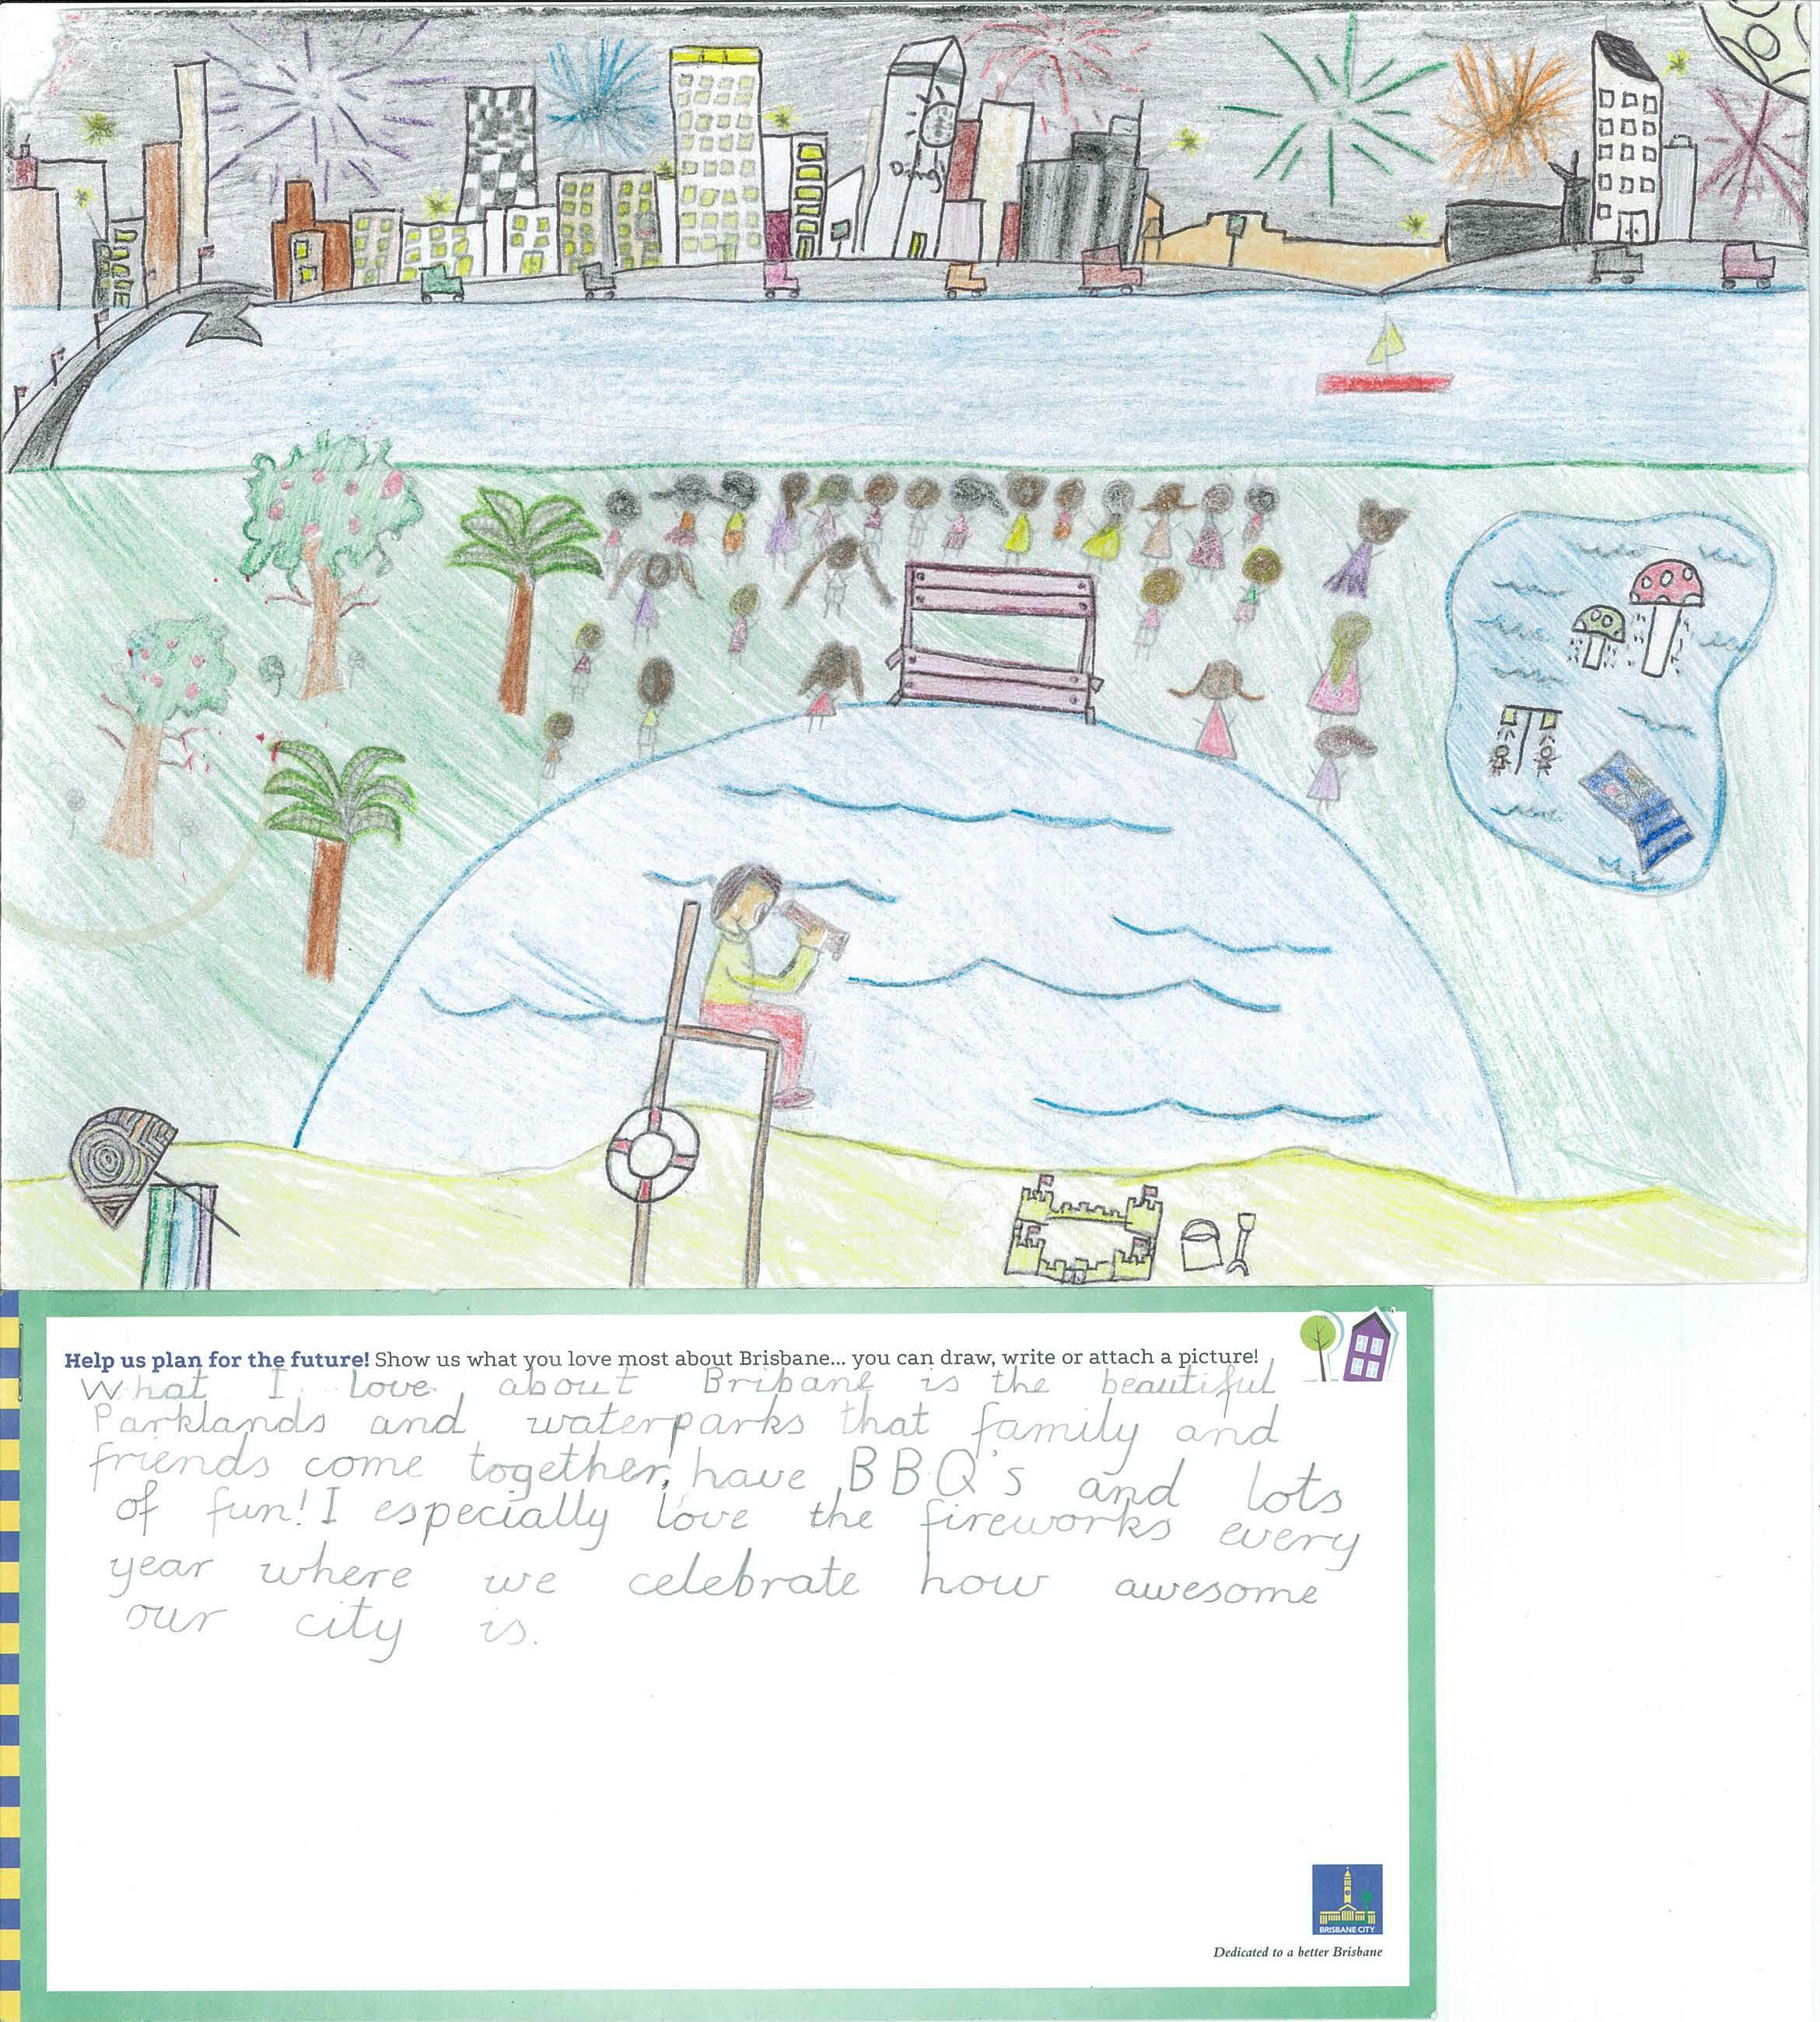 Dong!
Help us plan for the future! Show us what you love most about Brisbane... you can draw, write or attach a picture!
What I love about Bribane is the beautiful
Parklands and waterparks that family and
friends come together, have BBQ's and lots
of fun! I especially love the fireworks every
year where we celebrate how awesome
our city is.
BRISBANE CITY
Dedicated to a better Brisbane